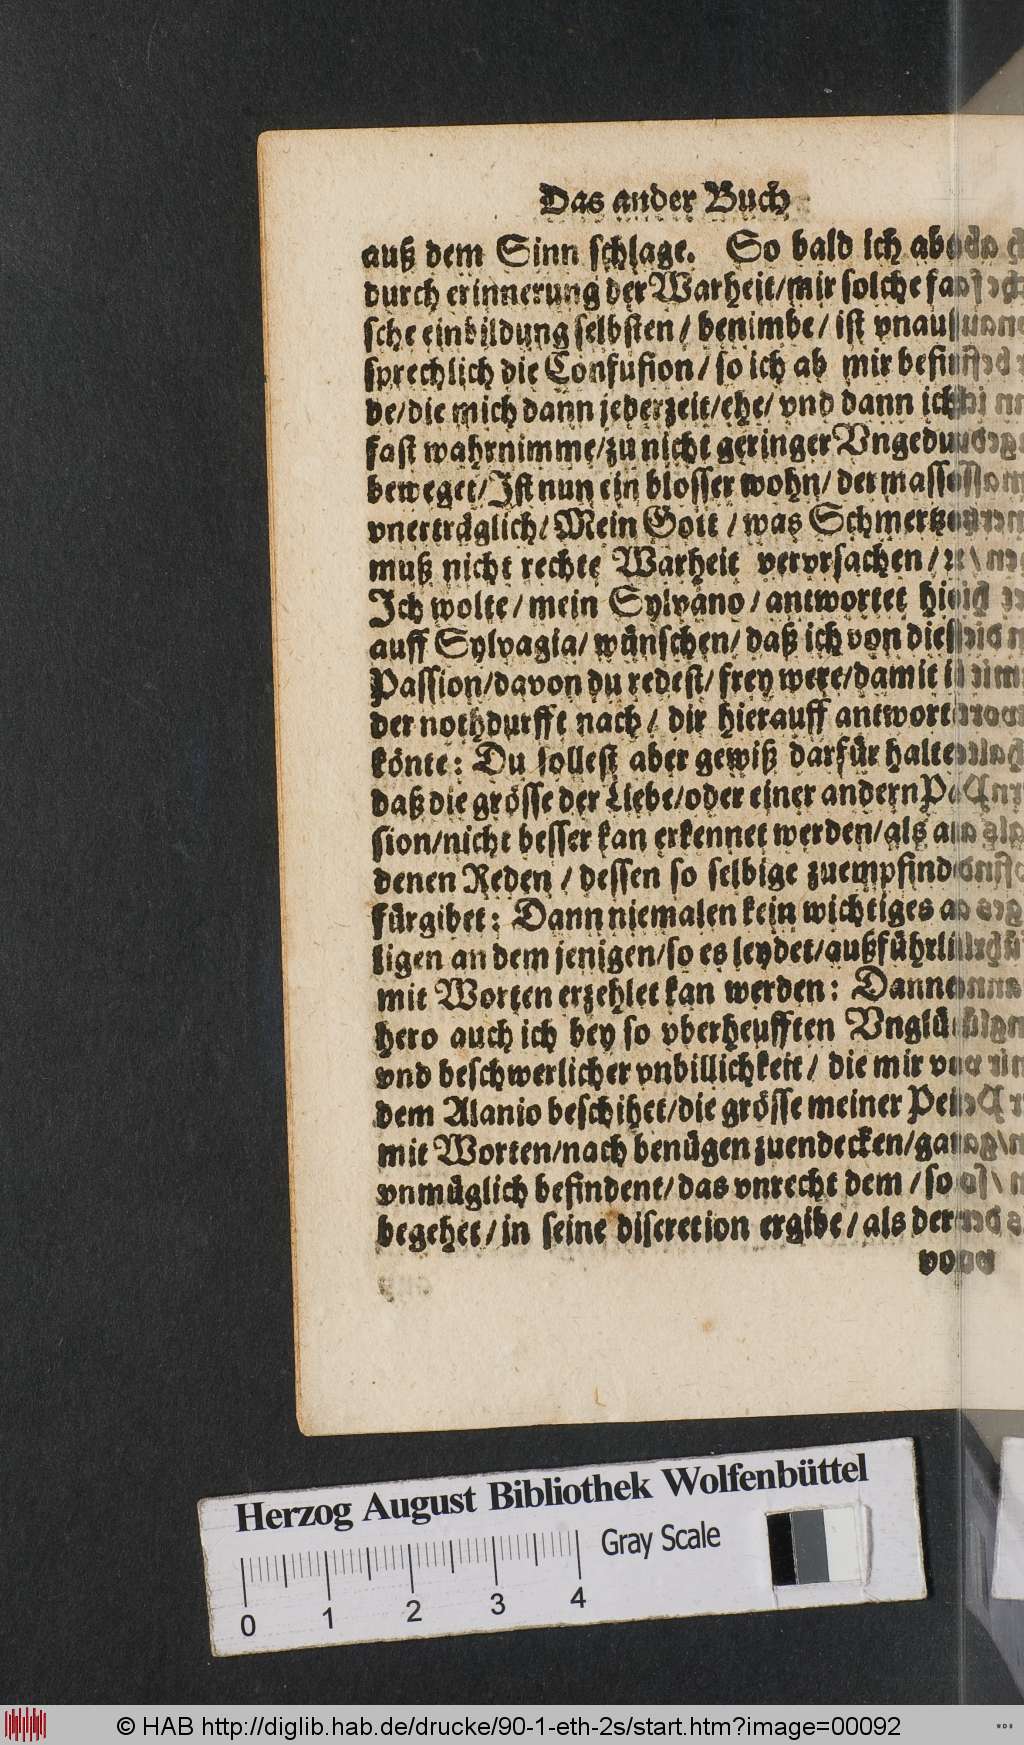 Das ander Buch
auß dem Sinn schlage. So bald ich ab
durch erinnerung der Warheit/mir solche fa
sche einbildung selbsten/ benimbe/ ist vnauß
sprechlich die Confusion/ so ich ab mir befin
de/die mich dann jederzeit/ehe/ vnd dann ich
fast wahrnimme/zu nicht geringer Vngedu
beweget/Ist nun ein blosser wohn/ der mass
vnerträglich/ Mein Gott / was Schmertz
muß nicht rechte Warheit vervrsachen/
Ich wolte/ mein Sylvano/ antwortet hi
auff Sylvagia/ wünschen/ daß ich von dies
Passion/davon du redest/ frey were/damit i
der nothdurfft nach/ dir hierauff antwort
könte: Du sollest aber gewiß darfür halte
daß die grösse der Liebe/oder einer andern Pa
sion/nicht besser kan erkennet werden/als a
denen Reden / dessen so selbige zuempfind
fürgibet: Dann niemalen kein wichtiges a
ligen an dem jenigen/so es leydet/außführli
mit Worten erzehlet kan werden: Danne
hero auch ich bey so vberheufften Vnglü
vnd beschwerlicher vnbillichkeit/ die mir vo
dem Alanio beschihet/die grösse meiner Pei
mit Worten/nach benügen zuendecken/ga
vnmüglich befindent/das vnrecht dem /so
begehet/in seine discretion ergibe/als der
Herzog August Bibliothek Wolfenbüttel
Gray Scale
0 1 2 3 4
© HAB http://diglib.hab.de/drucke/90-1-eth-2s/start.htm?image=00092